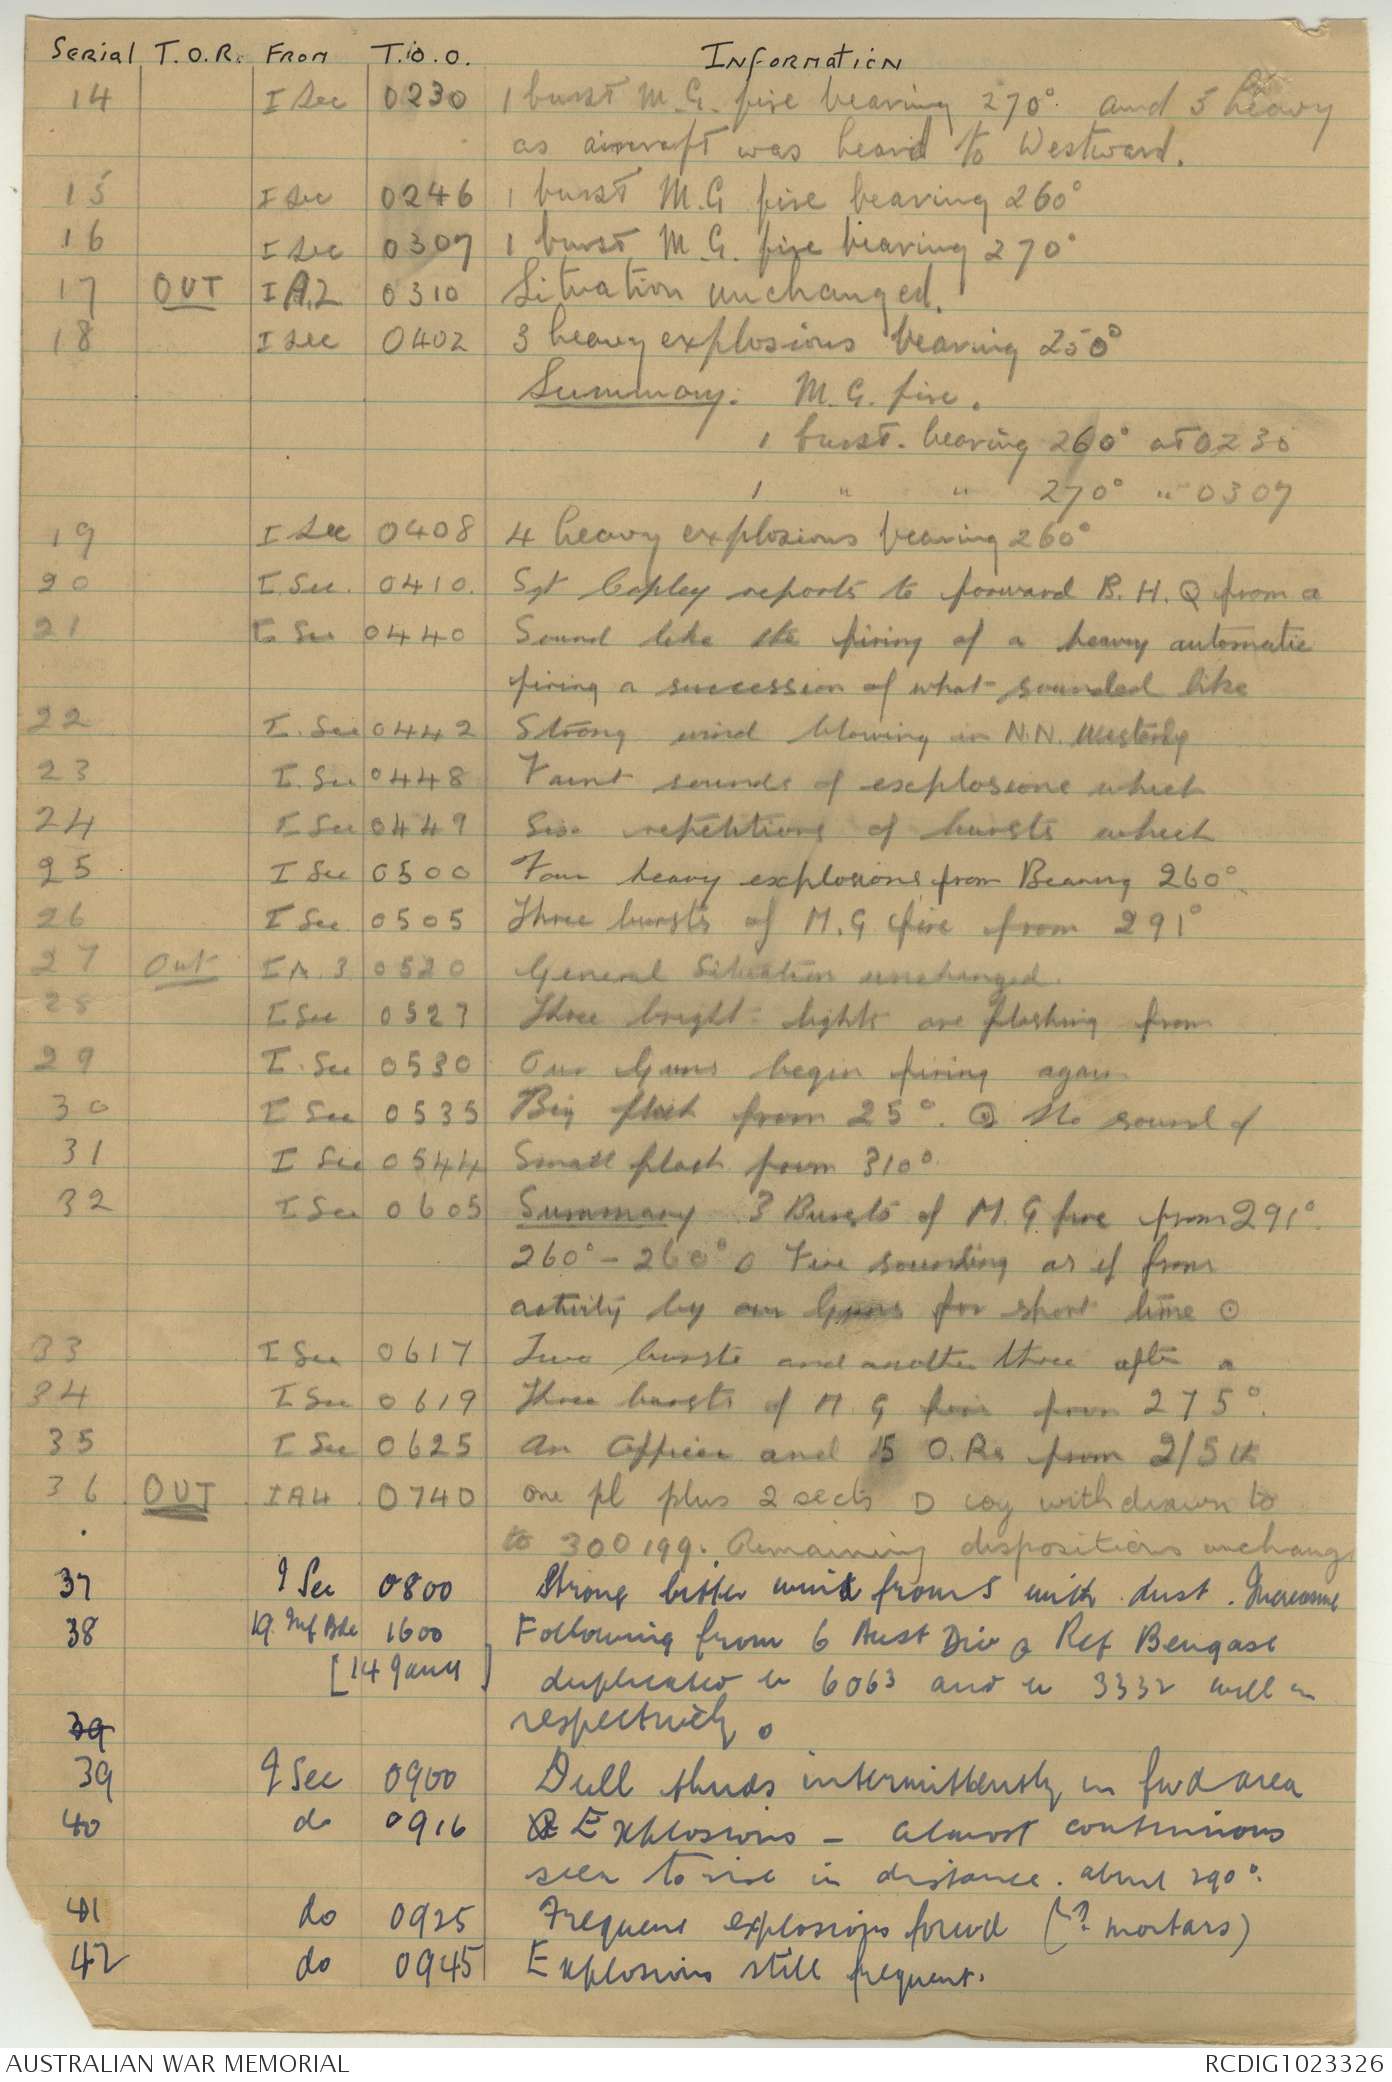 Serial T.O.R. From T.o.O. Information
14 I Sec 0230 1 burst M.G. fire bearing 270°. and 5 heavy
as aircraft was heard to Westward.
15 I Sec 0246 1 burst M.G fire bearing 260°
16 I Sec 0307 1 burst M.G. fire bearing 270°
17 OUT I A.2 0310 Situation unchanged.
18 I Sec 0402 3 heavy explosions bearing 250°
Summary. M.G. fire.
1 burst. bearing 260° at 0230
1 " " 270° " 0307
19 I Sec 0408 4 heavy explosions bearing 260°
20 I. Sec. 0410. Sgt Copley reports to forward B.H.Q from a
21 I Sec 0440 Sound like the firing of a heavy automatic
firing a succession of what sounded like
22 I. Sec 0442 Strong wind blowing in N.N. Westerly
23 I. Sec 0448 Faint sounds of explosions which
24 I Sec 0449 Six repetitions of bursts which
25 I Sec 0500 Four heavy explosions from Bearing 260°.
26 I Sec 0505 Three bursts of M.G fire from 291°
27 Out I A.3 0520 General Situation unchanged.
28 I. Sec 0527 Three bright lights are flashing from
29 I. Sec 0530 Our Guns begin firing again
30 I Sec 0535 Big flash from 25°. No sound of
31 I Sec 0544 Small flash from 310°
32 I Sec 0605 Summary 3 Bursts of M.G fire from 291°.
260° - 260° Fire sounding as if from
activity by our Guns for short time
33 I Sec 0617 Two bursts and another three after a
34 I Sec 0619 Three bursts of M.G fire from 275°.
35 I Sec 0625 An Officer and 15 O.Rs from 2/5th
36 OUT IA4 0740 one pl plus 2 sects D coy withdrawn to
to 300199. Remaining dispositions unchang
37 I Sec 0800 Strong bitter wind from S with dust. Increasing
38 19. Inf Bde 1600 Following from 6 Aust Div Ref Bengasi
[14 Jan 41] duplicated in 6063 and in 3332 will
respectively.
39
39 I Sec 0900 Dull thuds intermittently in fwd area
40 do 0916 Explosions - almost continuous
seen to rise in distance. about 290°.
41 do 0925 Frequent explosions forwd (? mortars)
42 do 0945 Explosions still frequent.
AUSTRALIAN WAR MEMORIAL RCDIG1023326